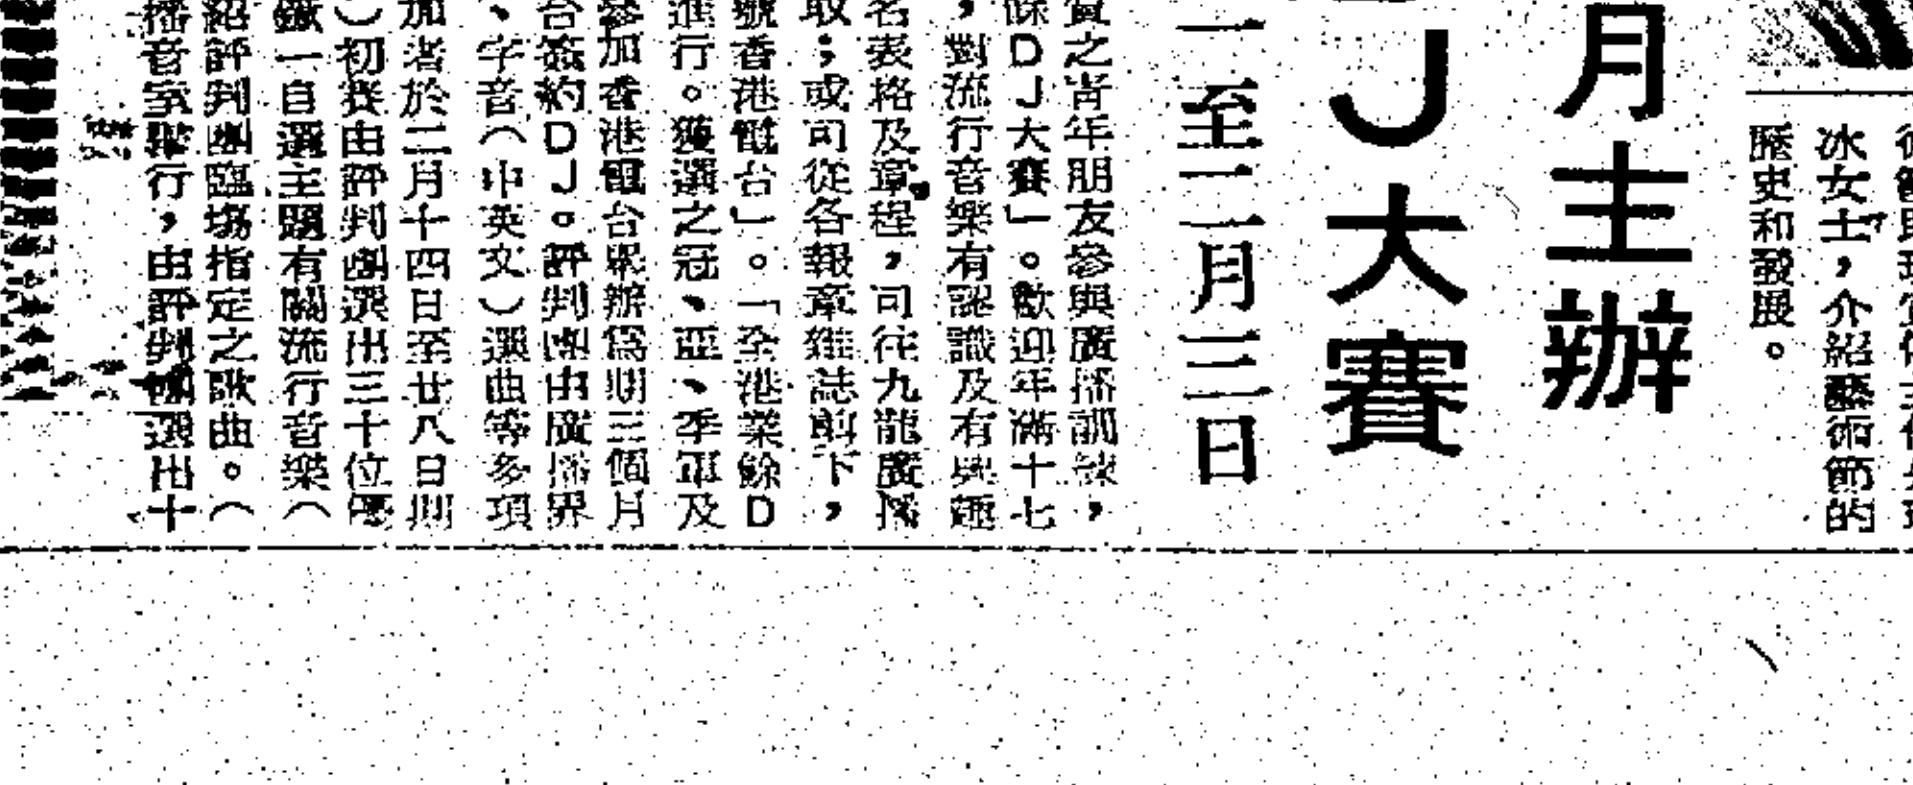 冰女士，介紹藝術節的
歷史和發展。
月主辦
J大賽
一至二月三日
資之青年朋友參與廣播訓練，
餘DJ大賽」。歡迎年滿十七
，對流行音樂有認識及有興趣
名表格及章程，司往九龍廣播
取；或可從各報章雜誌剪下，
號香港電台」。「全港業餘D
進行。獲選之冠、亞、季軍及
參加香港電台舉辦爲期三個月
台簽約DJ。評判團由廣播界
、字音（中英文）選曲等多項
加者於二月十四日至廿八日期
）初賽由評判團選出三十位優
一自選主題有關流行音樂（
紹評判團臨場指定之歌曲。（
播音室舉行，由評判團選出十